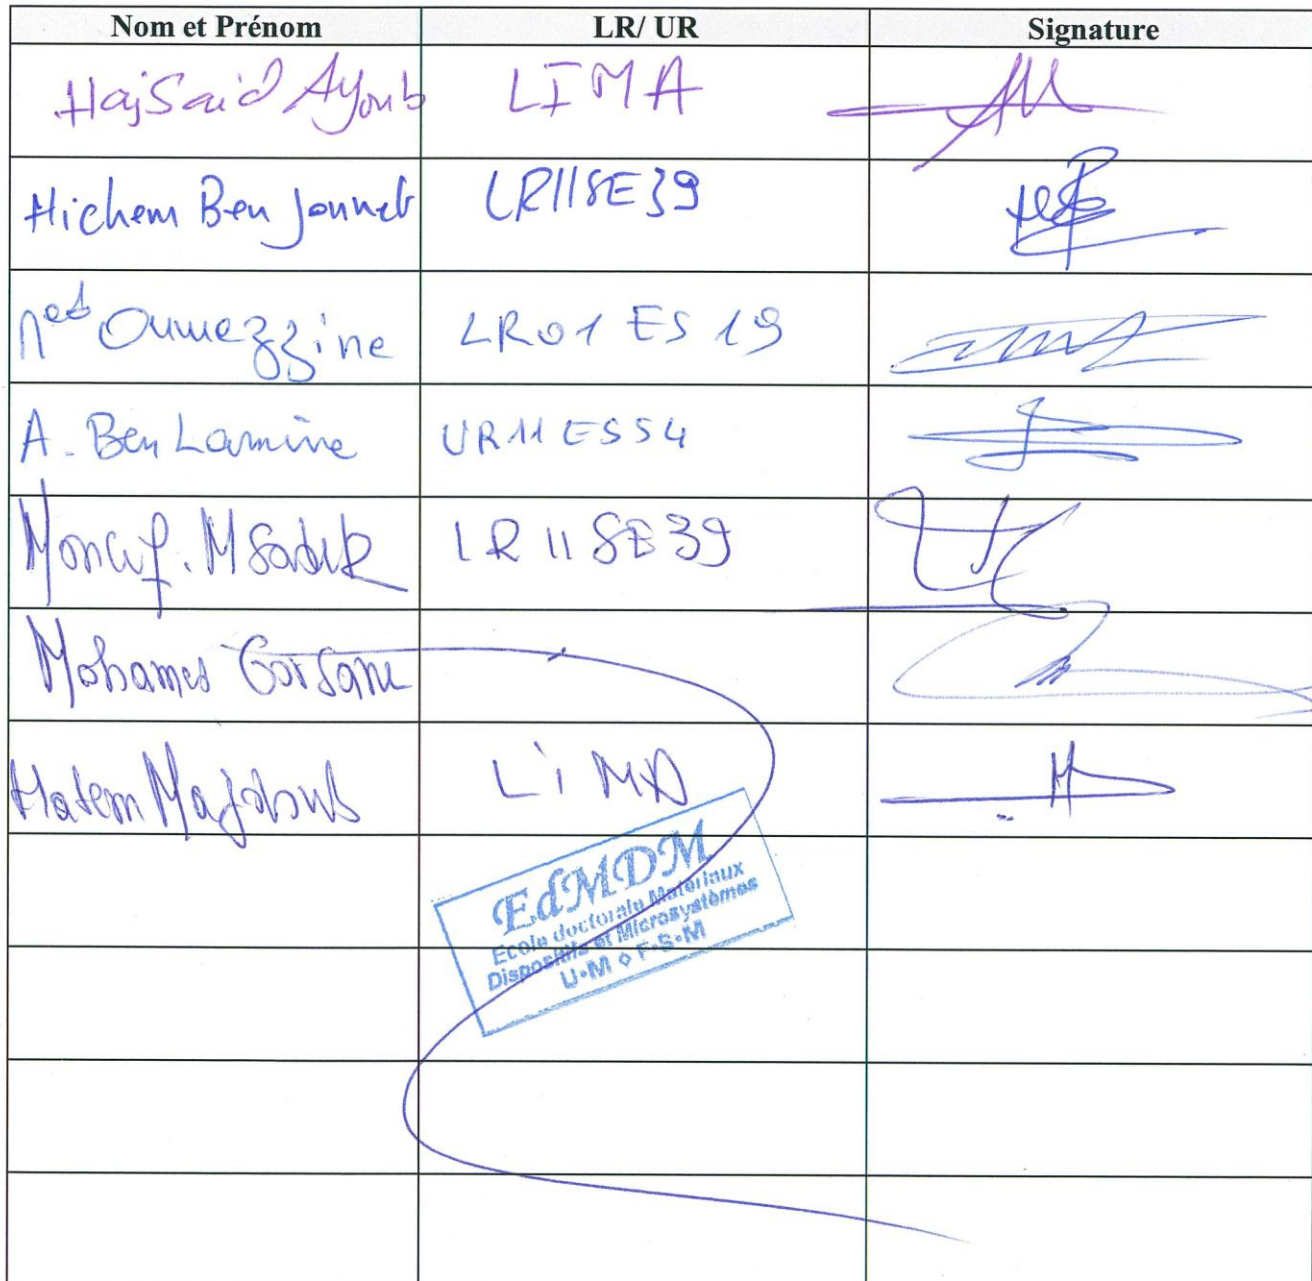 Nom et Prénom LR/ UR Signature
Haj Said Ayoub LIMA
Hichem Ben Jannet LR11SE39
Med Oumezzine LR01 ES 19
A. Ben Lamine UR11ES54
Moncef. Msaddek LR11SE39
Mohamed
Hatem Majdoub LiMA
EdMDM
Ecole doctorale Matériaux
Dispositifs et Microsystèmes
U•M ◇ F•S•M